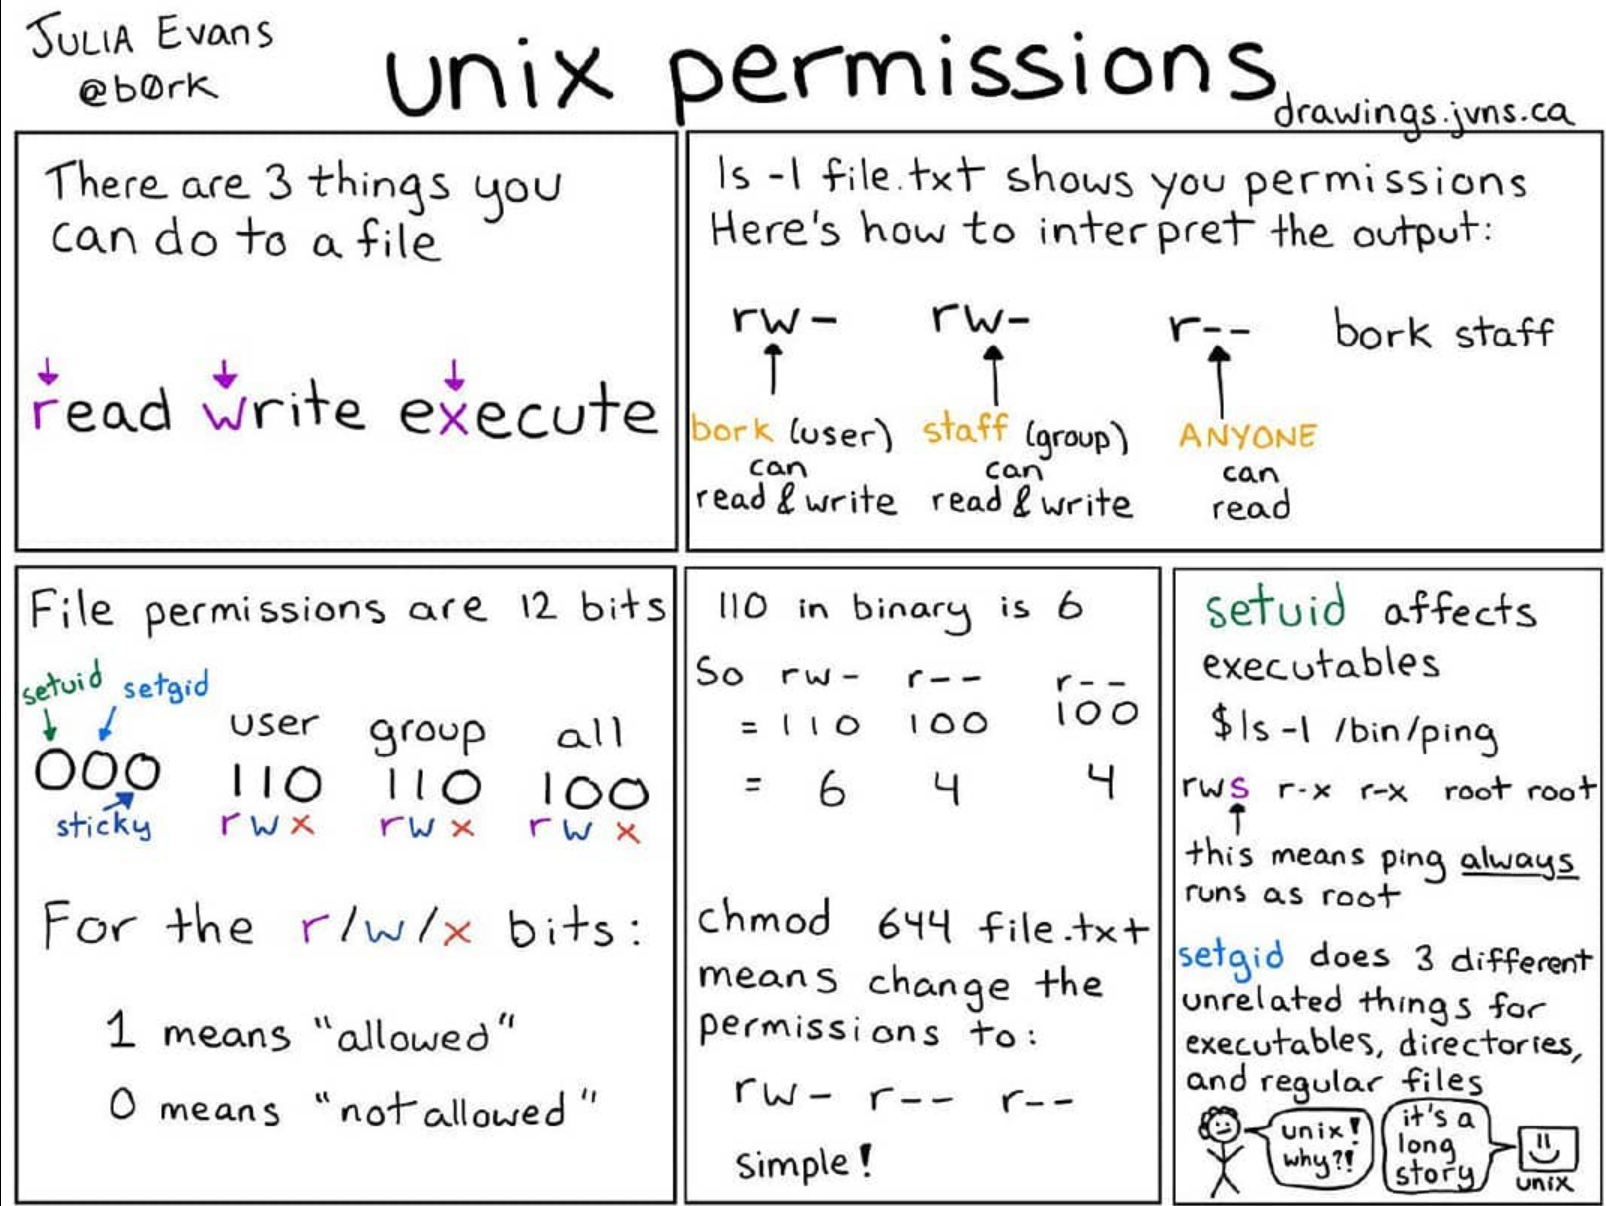 JULIA Evans
@b0rk
unix permissions
drawings.jvns.ca
There are 3 things you
can do to a file
read write execute
ls -l file.txt shows you permissions
Here's how to interpret the output:
rw- rw- r-- bork staff
bork (user) staff (group) ANYONE
can can can
read & write read & write read
File permissions are 12 bits
setuid setgid
user group all
000 110 110 100
sticky rwx rwx rwx
For the r/w/x bits:
1 means "allowed"
0 means "not allowed"
110 in binary is 6
So rw- r-- r--
= 110 100 100
= 6 4 4
chmod 644 file.txt
means change the
permissions to:
rw- r-- r--
simple!
setuid affects
executables
$ls -l /bin/ping
rws r-x r-x root root
this means ping always
runs as root
setgid does 3 different
unrelated things for
executables, directories,
and regular files
unix!
why?!
it's a
long
story
unix